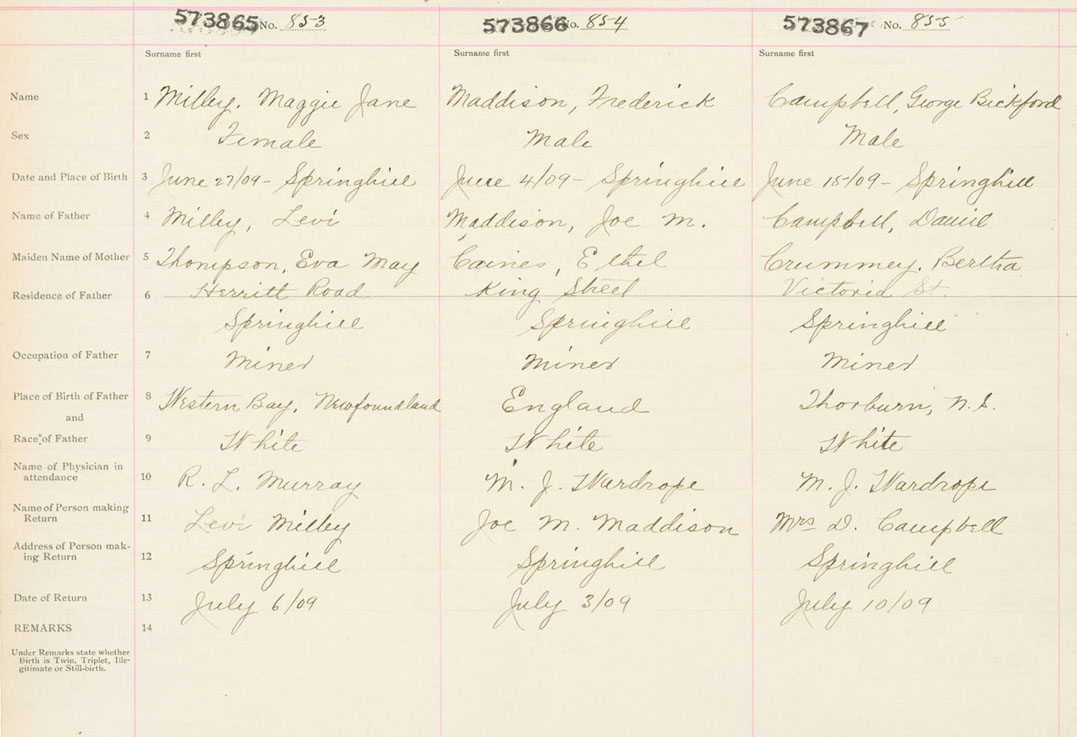 573865 No. 853 573866 No. 854 573867 No. 855
Surname first Surname first Surname first
Name 1 Milley, Maggie Jane Maddison, Frederick Campbell, George Bickford
Sex 2 Female Male Male
Date and Place of Birth 3 June 27/09 - Springhill June 4/09 - Springhill June 15/09 - Springhill
Name of Father 4 Milley, Levi Maddison, Joe M. Campbell, Daniel
Maiden Name of Mother 5 Thompson, Eva May Caines, Ethel Crummey, Bertha
Residence of Father 6 Herritt Road King Street Victoria St.
Springhill Springhill Springhill
Occupation of Father 7 Miner Miner Miner
Place of Birth of Father 8 Western Bay, Newfoundland England Thorburn, N.S.
and
Race of Father 9 White White White
Name of Physician in
attendance 10 R. L. Murray M. J. Wardrope M. J. Wardrope
Name of Person making
Return 11 Levi Milley Joe M. Maddison Mrs D. Campbell
Address of Person mak-
ing Return 12 Springhill Springhill Springhill
Date of Return 13 July 6/09 July 3/09 July 10/09
REMARKS 14
Under Remarks state whether
Birth is Twin, Triplet, Ille-
gitimate or Still-birth.